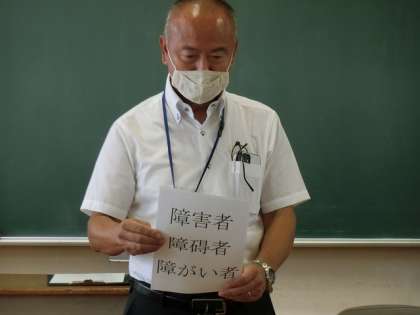 障害者
障碍者
障がい者